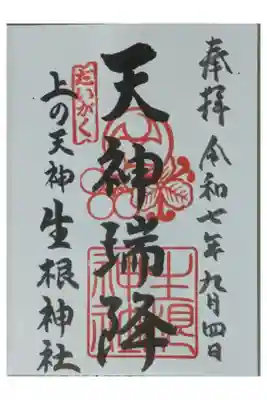 奉拝 令和七年九月四日
天神瑞降
だいがく
上の天神 生根神社
生根神社